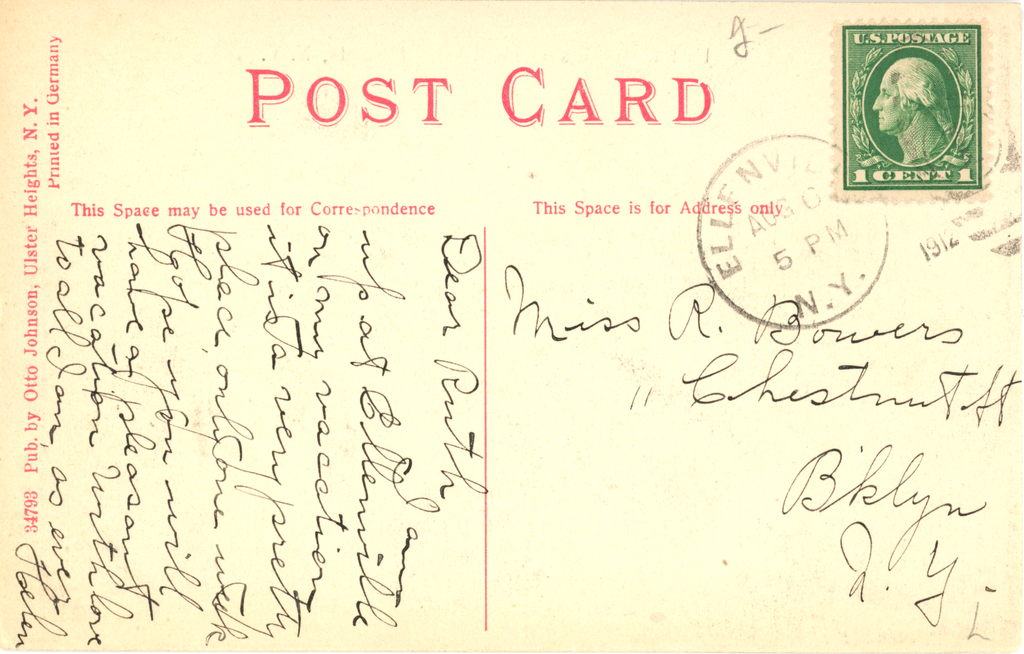 POST CARD
U.S. POSTAGE
1 CENT 1
This Space may be used for Correspondence
This Space is for Address only
ELLENVILLE
AUG
5 PM
N.Y.
1912
Dear Ruth
I am
up at Ellenville
on my vaction
it is a very pretty
place, only one week
Hope you will
have a pleasant
vacation with love
to all I am, as ever
Helen
Miss R. Bowers
11 Chestnut St
B'klyn
N. Y.
34793 Pub. by Otto Johnson, Ulster Heights, N. Y.
Printed in Germany